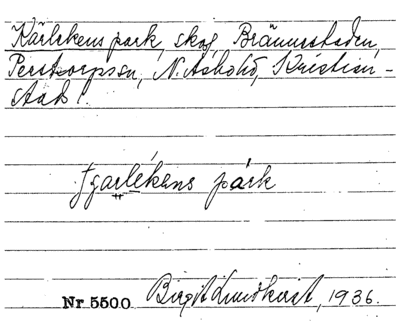 Kärlekens park, skog, Brännestaden,
Perstorps sn, N. Åsbo hd, Kristian-
stad l.
garlékens párk
Nr 5500 Birgit Lundkvist, 1936.